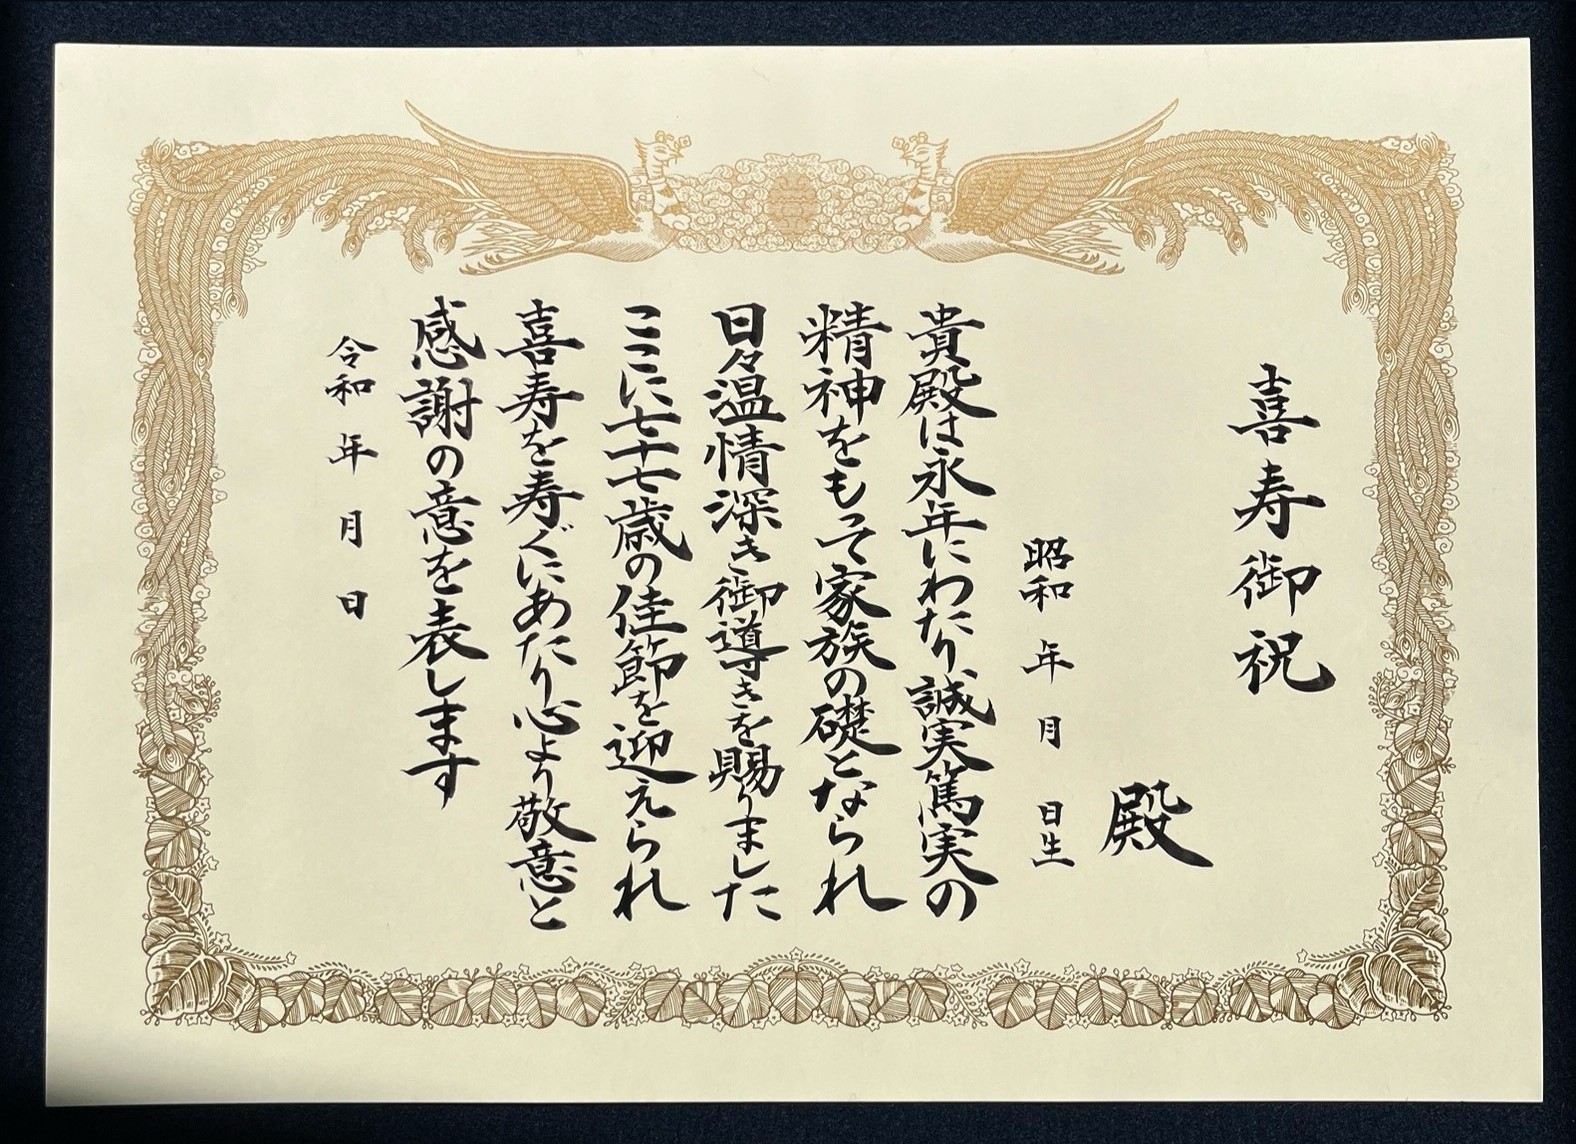 喜寿御祝
殿
昭和 年 月 日生
貴殿は永年にわたり誠実篤実の
精神をもって家族の礎となられ
日々温情深き御導きを賜りました
ここに七十七歳の佳節を迎えられ
喜寿を寿ぐにあたり心より敬意と
感謝の意を表します
令和 年 月 日